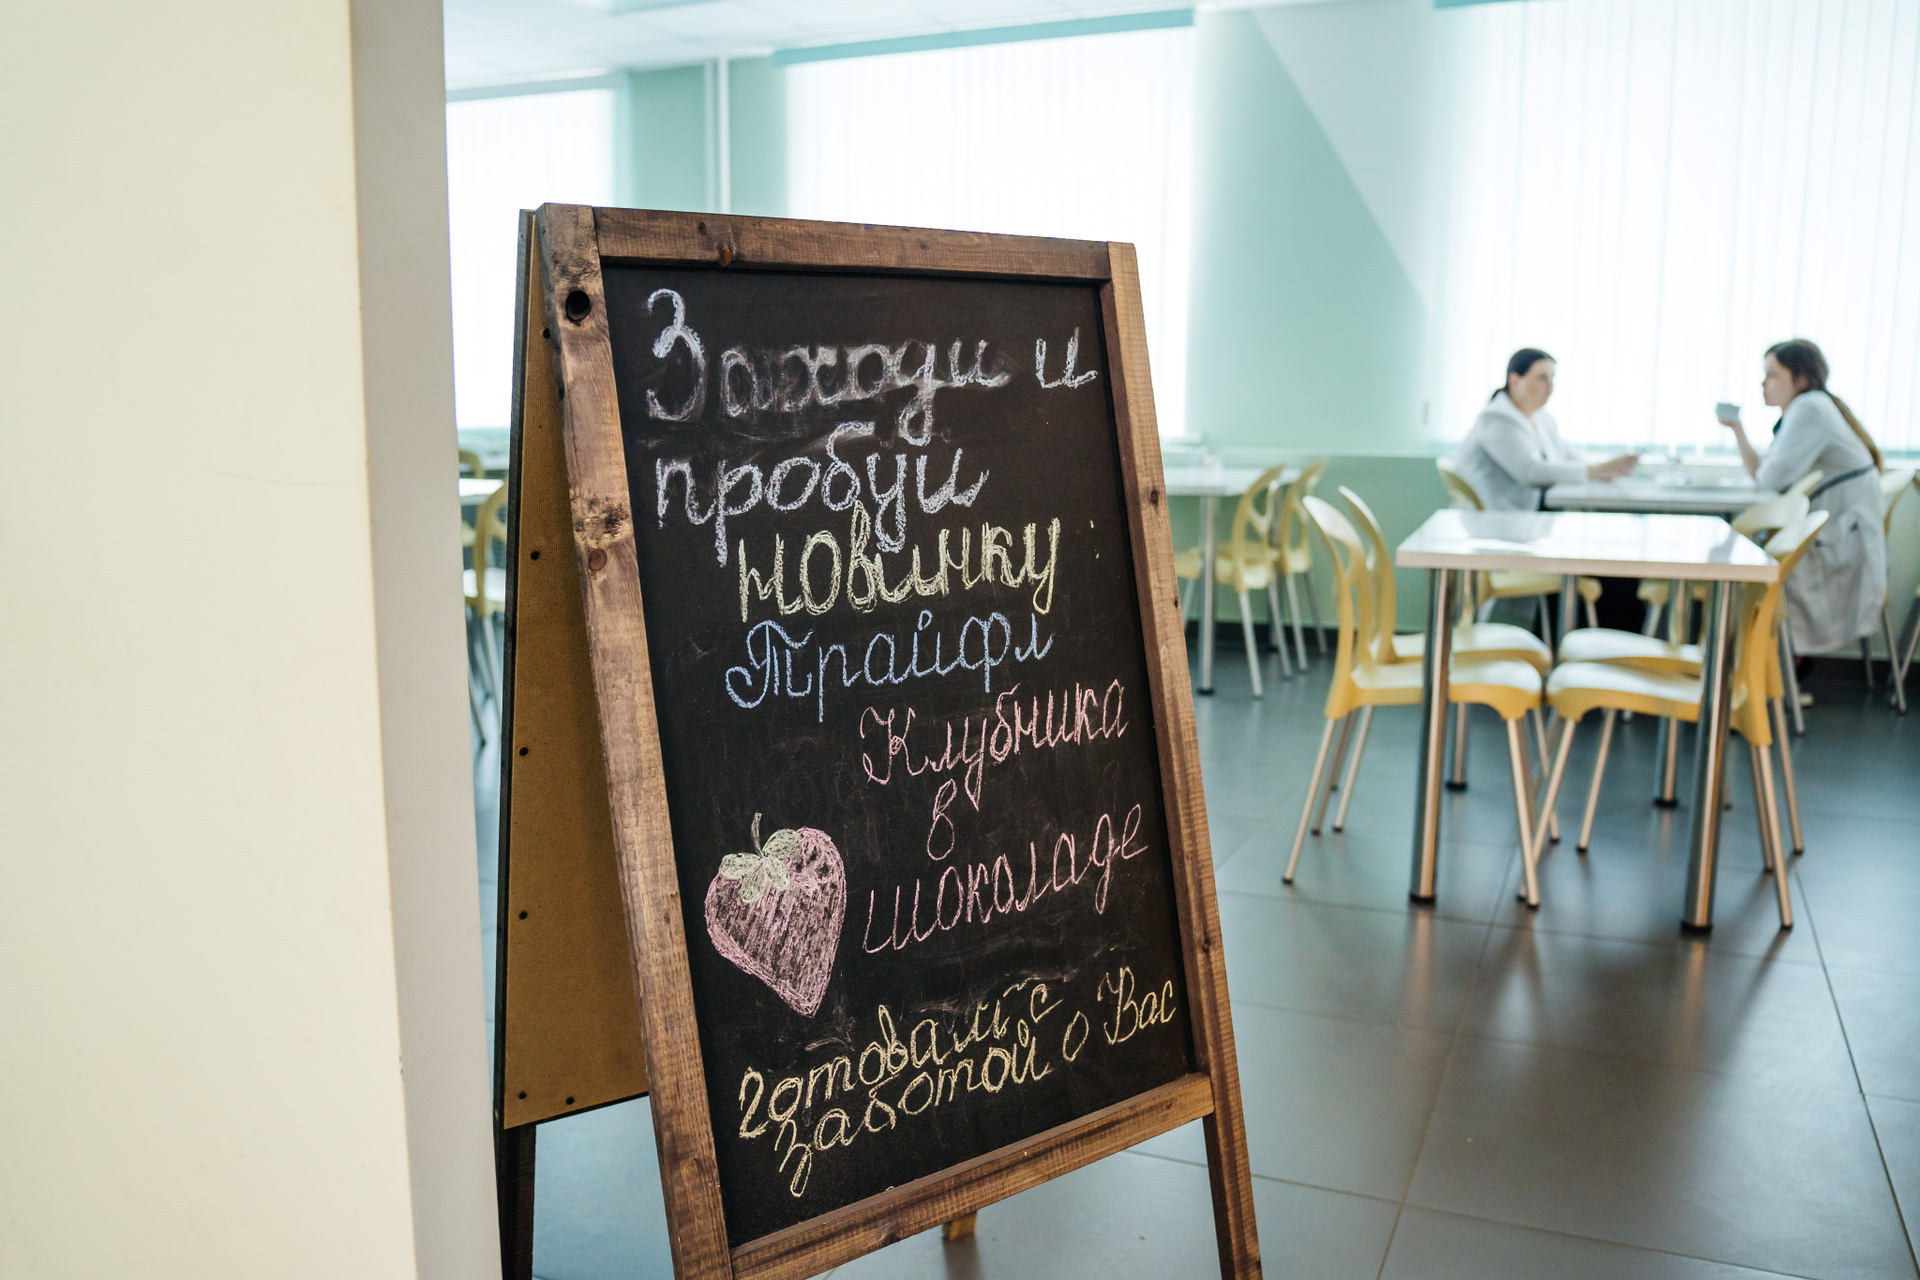 Заходи и
пробуй
новинку
Трайфл
Клубника
в
шоколаде
готовим с
заботой о Вас